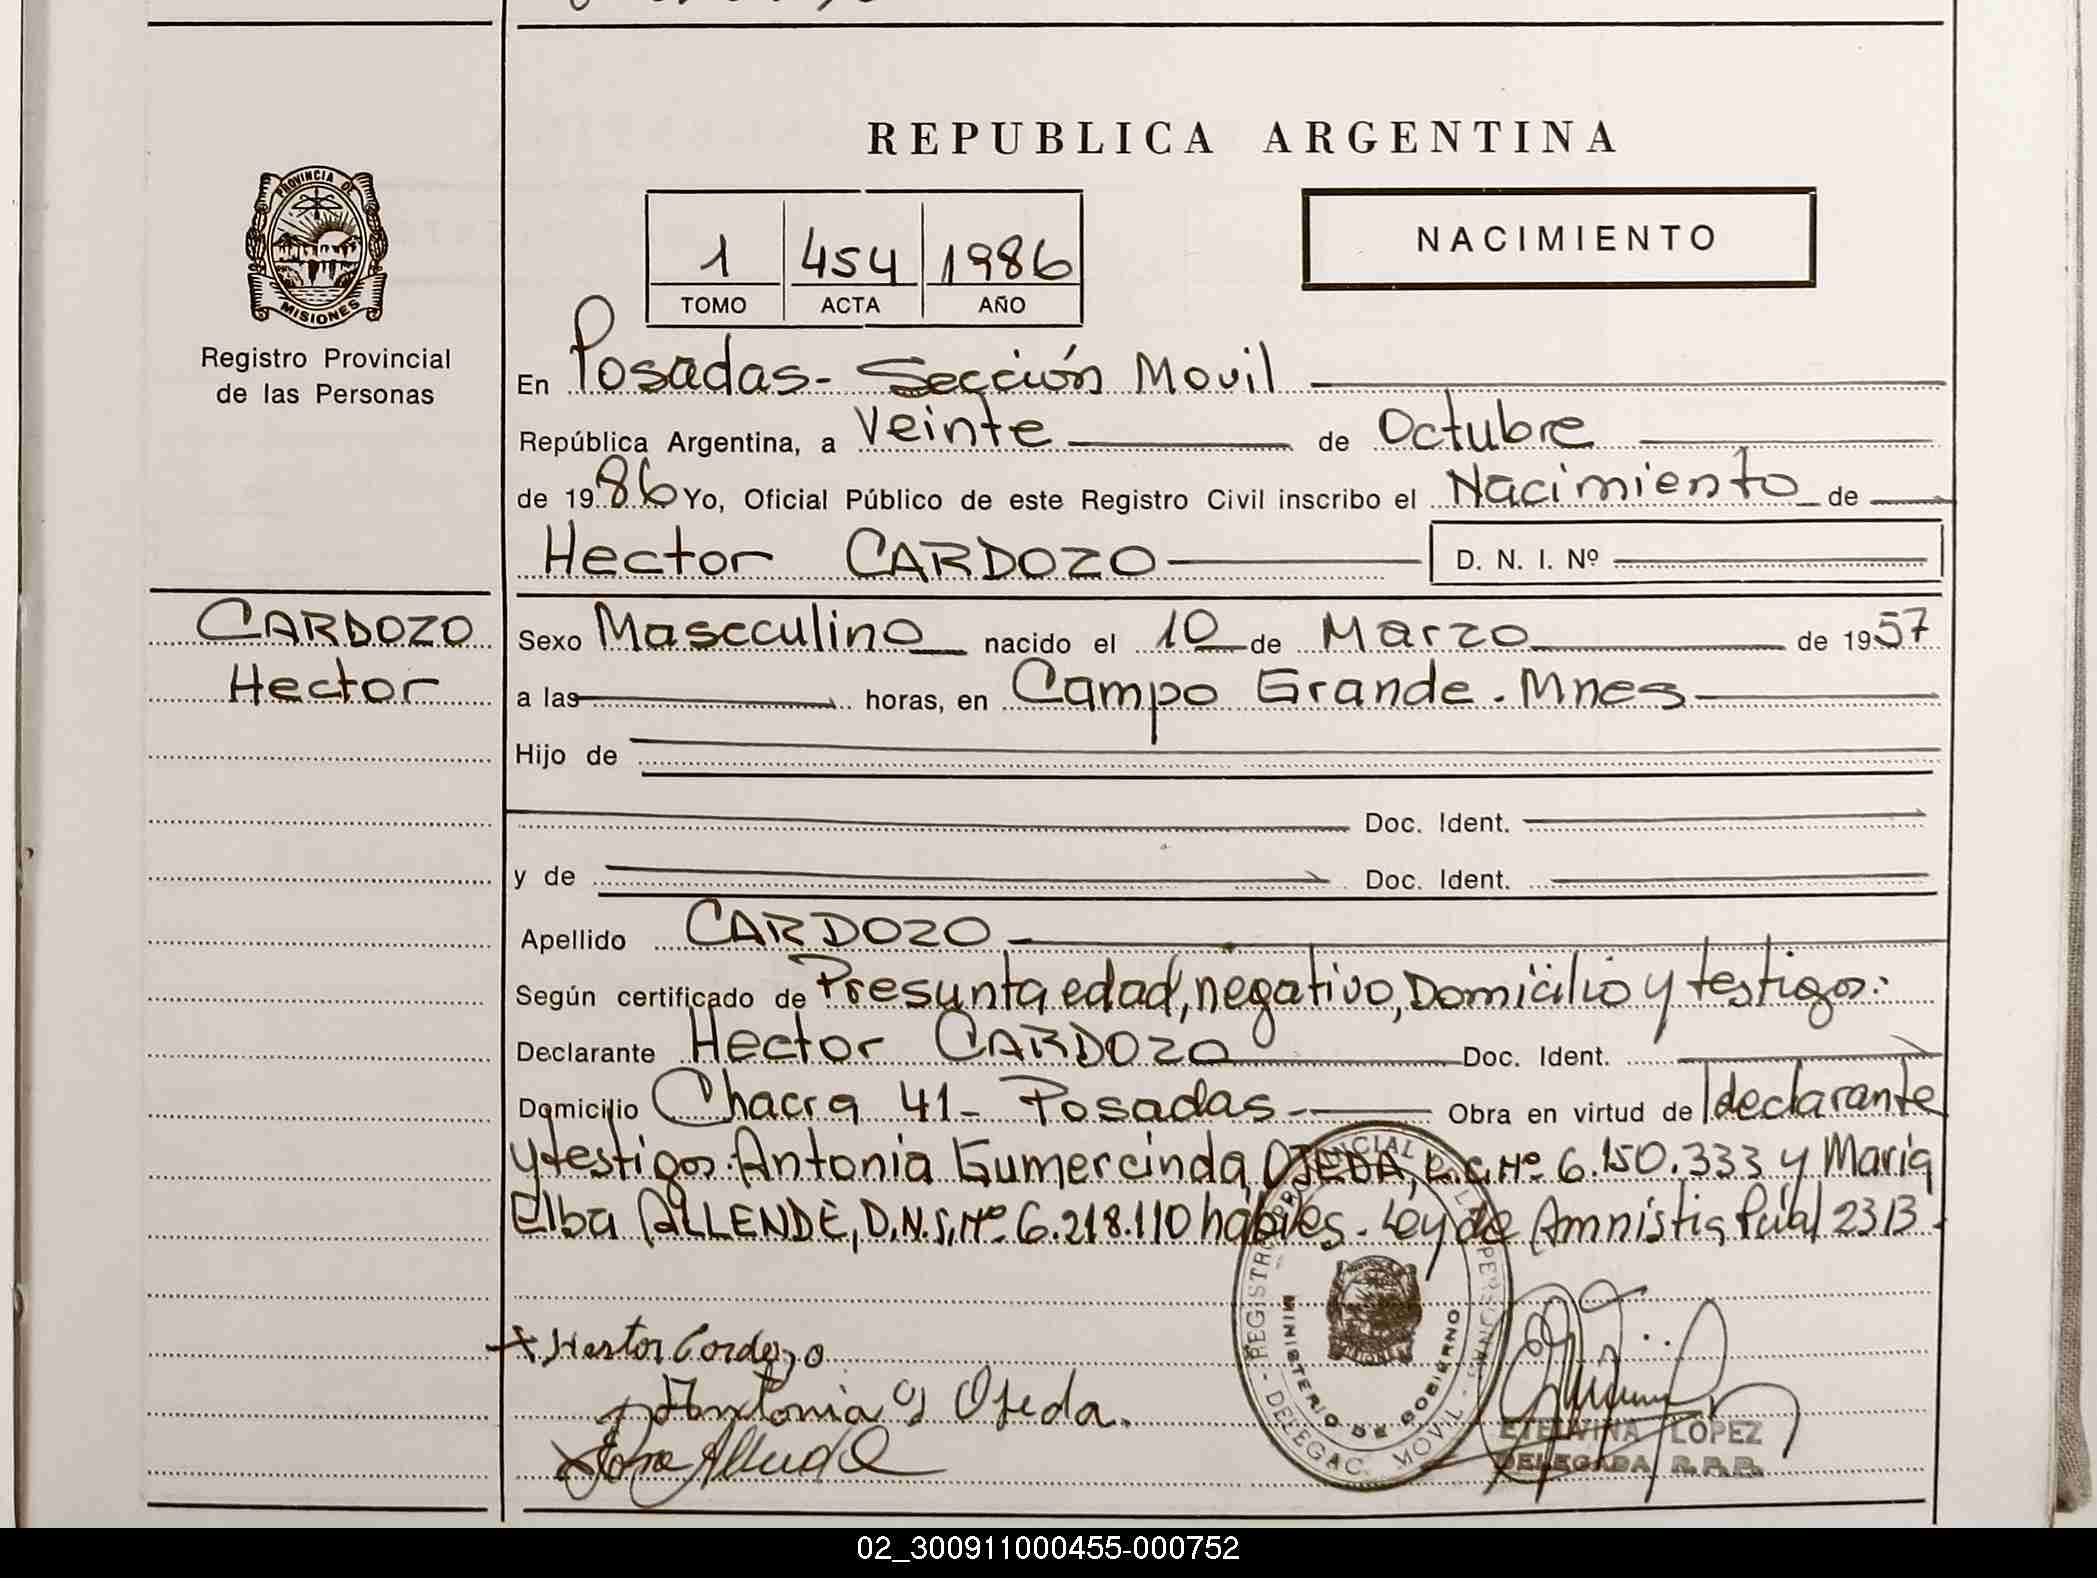 REPUBLICA ARGENTINA
PROVINCIA DE
MISIONES
Registro Provincial
de las Personas
1 454 1986
TOMO ACTA AÑO
NACIMIENTO
En Posadas- Sección Movil
República Argentina, a Veinte de Octubre
de 1986 Yo, Oficial Público de este Registro Civil inscribo el Nacimiento de
Hector CARDOZO D. N. I. Nº
CARDOZO
Hector
Sexo Mascculino nacido el 10 de Marzo de 1957
a las horas, en Campo Grande. Mnes
Hijo de
Doc. Ident.
y de Doc. Ident.
Apellido CARDOZO
Según certificado de Presunta edad, negativo, Domicilio y testigos:
Declarante Hector CARDOZO Doc. Ident.
Domicilio Chacra 41- Posadas- Obra en virtud de declarante
y testigos: Antonia Gumercinda OJEDA, Nº 6.150.333 y Maria
Elba ALLENDE, D.N.I. Nº 6.218.110 hábiles. Ley de Amnistia Pcial 2313.
Hector Cardozo
Antonia G Ojeda.
Allende
REGISTRO PROVINCIAL DE LAS PERSONAS - DELEGAC. MOVIL -
MINISTERIO DE GOBIERNO
ETELVINA LOPEZ
DELEGADA R.P.P.
02_300911000455-000752